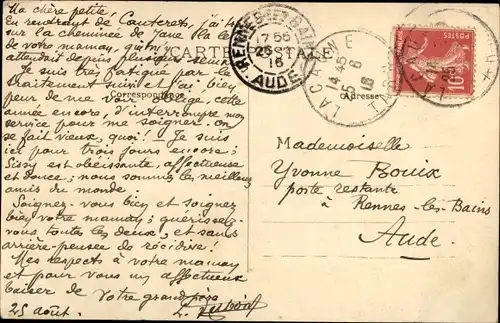 Ma chère petite,
En rentrant de Cauterets, j'ai
sur la cheminée de
de votre maman, qui m'
attendait depuis plusieurs semaines
Je suis très fatigué par le
traitement suivi et j'ai bien
peur de me voir obligé, cette
année encore, d'interrompre mon
service pour me soigner. On
se fait vieux, quoi! Je suis
ici pour trois jours encore;
Sissy est obéissante, affectueuse
et douce; nous sommes les meilleurs
amis du monde.
Soignez-vous bien et soignez
bien votre maman; guérissez-
vous toutes les deux, et sans
arrière-pensée de récidive!
Mes respects à votre maman
et pour vous un affectueux
baiser de votre grand père
25 août. L.
CARTE POSTALE
Correspondance
Adresse
RENNES-LES-BAINS
17 55
25
16
AUDE
LACAUNE
14 45
5 8
16
TARN
LACAU
POSTES
10
Mademoiselle
Yvonne Bouix
poste restante
à Rennes-les-Bains
Aude